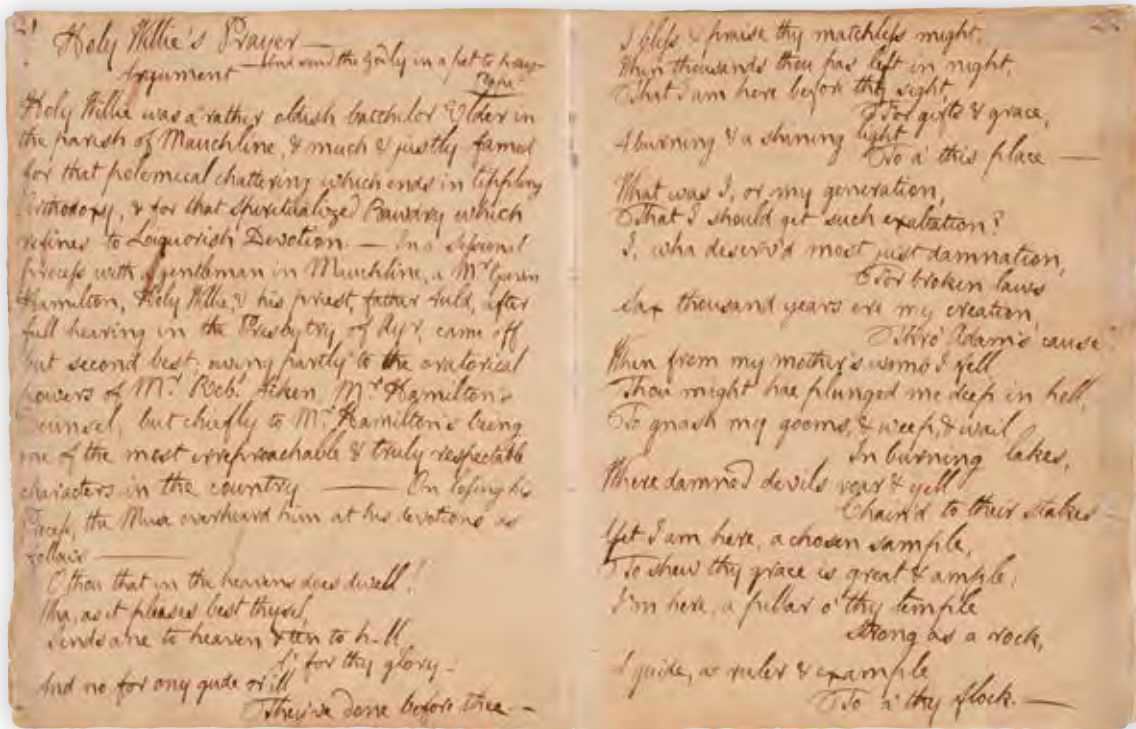 21
Holy Willie's Prayer —
Argument — And send the Godly in a pet to pray —
Pope
Holy Willie was a rather oldish batchelor Elder in
the parish of Mauchline, & much & justly famed
for that polemical chattering which ends in tippling
Orthodoxy, & for that Spiritualized Bawdry which
refines to Liquorish Devotion. — In a Sessional
process with a gentleman in Mauchline, a Mr Gavin
Hamilton, Holy Willie, & his priest, father Auld, after
full hearing in the Presbytry of Ayr, came off
but second best; owing partly to the oratorical
powers of Mr Robt Aiken, Mr Hamilton's
Counsel, but chiefly to Mr Hamilton's being
one of the most irreproachable & truly respectable
characters in the country — On losing his
Process, the Muse overheard him at his devotions as
follows —
O thou that in the heavens does dwell!
Wha, as it pleases best thysel,
Sends ane to heaven & ten to h-ll,
A' for thy glory!
And no for ony gude or ill
They've done before thee. —
22
I bless & praise thy matchless might,
When thousands thou has left in night,
That I am here before thy sight,
For gifts & grace,
A burning & a shining light
To a' this place —
What was I, or my generation,
That I should get such exaltation?
I, wha deserv'd most just damnation,
For broken laws
Sax thousand years ere my creation,
Thro' Adam's cause!
When from my mother's womb I fell
Thou might hae plunged me deep in hell,
To gnash my gooms, & weep, & wail,
In burning lakes,
Where damned devils roar & yell
Chain'd to their stakes —
Yet I am here, a chosen sample,
To shew thy grace is great & ample:
I'm here, a pillar o' thy temple
Strong as a rock,
A guide, a ruler & example
To a' thy flock. —